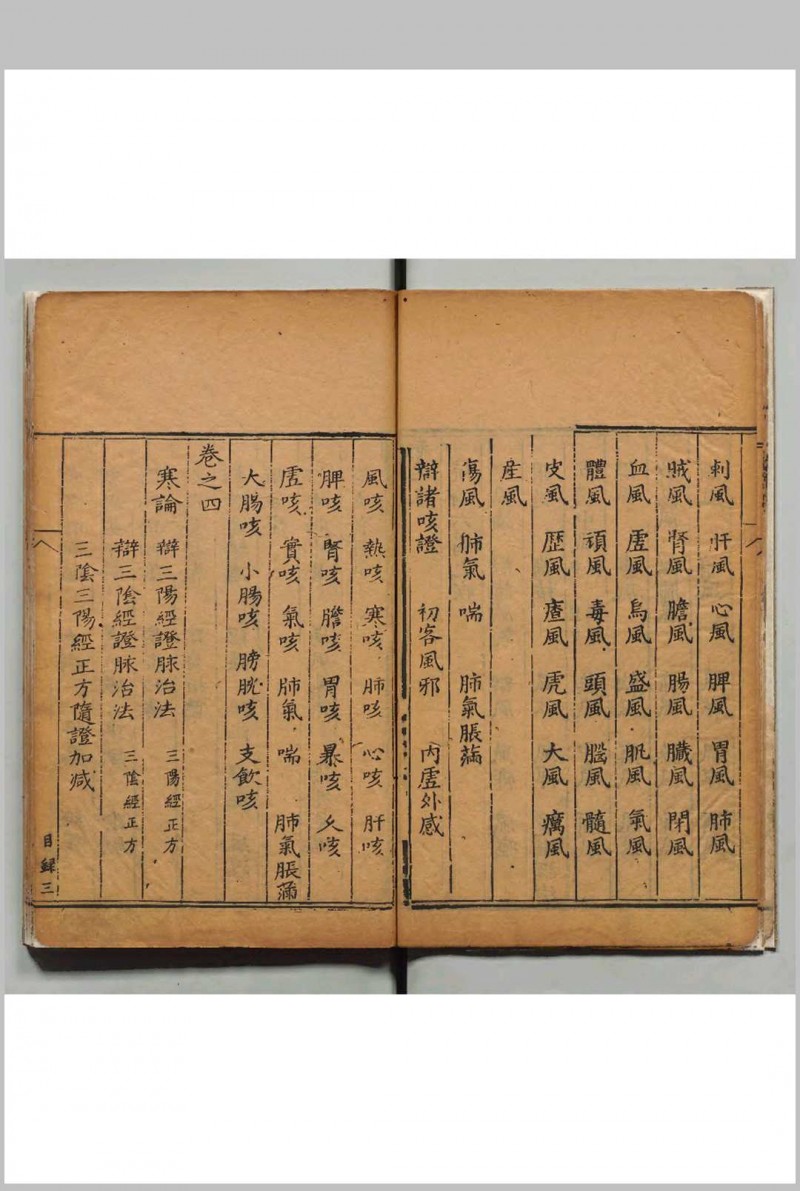 刺風 肝風 心風 脾風 胃風 肺風
賊風 腎風 膽風 腸風 臓風 閉風
血風 虚風 烏風 盛風 肌風 氣風
體風 頑風 毒風 頭風 腦風 髓風
皮風 歴風 瘡風 虎風 大風 癘風
産風
傷風 肺氣喘 肺氣脹滿
辯諸咳證 初客風邪 内虚外感
風咳 熱咳 寒咳 肺咳 心咳 肝咳
脾咳 腎咳 膽咳 胃咳 暴咳 久咳
虚咳 實咳 氣咳 肺氣喘 肺氣脹滿
大腸咳 小腸咳 膀胱咳 支飲咳
卷之四
寒論 辯三陽經證脉治法 三陽經正方
辯三陰經證脉治法 三陰經正方
三陰三陽經正方隨證加減
目録三